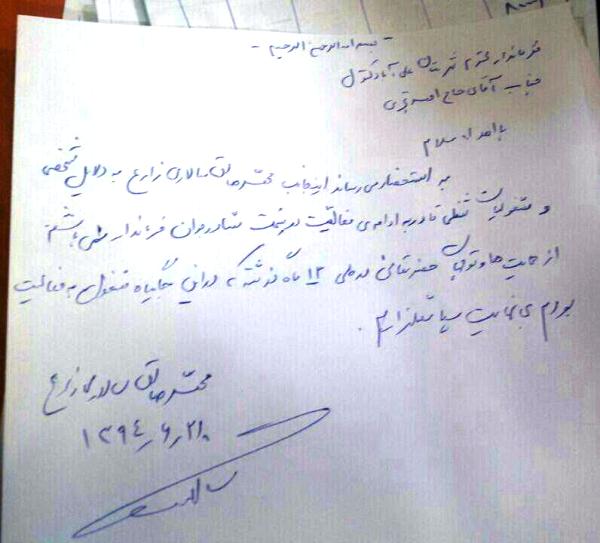 بسم الله الرحمن الرحیم
فرماندار محترم شهرستان علی آباد کتول
جناب آقای حاج
با اهداء سلام
به استحضار می رساند اینجانب محمدصادق سالاری زارع به دلایل شخصی
و مشغولیات شغلی قادر به ادامه ی فعالیت در سمت مشاور جوان فرماندار نمی باشم
از حمایت ها و توجهات حضرتعالی در طی ۱۲ ماه گذشته که در این جایگاه مشغول به فعالیت
بودم بی نهایت سپاسگزارم.
محمدصادق سالاری زارع
۱۳۹۴٫۶٫۲۱